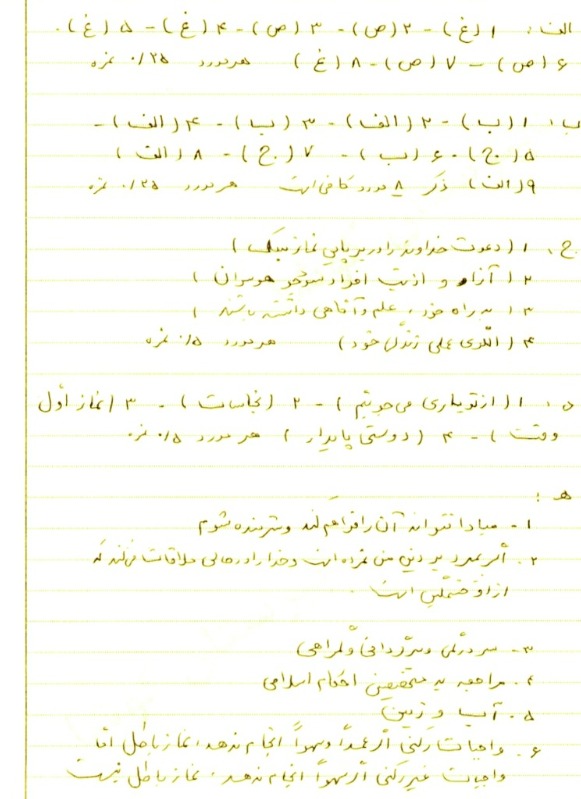 الف: ۱ (غ) - ۲ (ص) - ۳ (ص) - ۴ (غ) - ۵ (غ) -
۶ (ص) - ۷ (ص) - ۸ (غ) هر مورد ۰/۲۵ نمره
ب: ۱ (ب) - ۲ (الف) - ۳ (ب) - ۴ (الف) -
۵ (ج) - ۶ (ب) - ۷ (ج) - ۸ (الف)
۹ (الف) ذکر ۸ مورد کافی است هر مورد ۰/۲۵ نمره
ج: ۱ (دعوت خداوند را در برپایی نماز لبیک)
۲ (آزار و اذیت افراد سودجو هوسران)
۳ (به راه خود، علم و آگاهی داشته باشند)
۴ (الگوی عملی زندگی خود) هر مورد ۰/۵ نمره
د: ۱ (از تو یاری می‌جوییم) - ۲ (نجاسات) - ۳ (نماز اول
وقت) - ۴ (دوستی پایدار) هر مورد ۰/۵ نمره
ه:
۱- مبادا نتواند آن را فراهم کند و شرمنده شوم
۲- اگر بمیرد بر دین من نمرده است و خدا را در حالی ملاقات می‌کند که
از او خشمگین است.
۳- سردرگمی و سرگردانی و گمراهی
۴- مراجعه به متخصصین احکام اسلامی
۵- آب و زمین
۶- واجبات رکنی اگر عمداً و سهواً انجام ندهد، نماز باطل اما
واجبات غیر رکنی اگر سهواً انجام ندهد، نماز باطل نیست